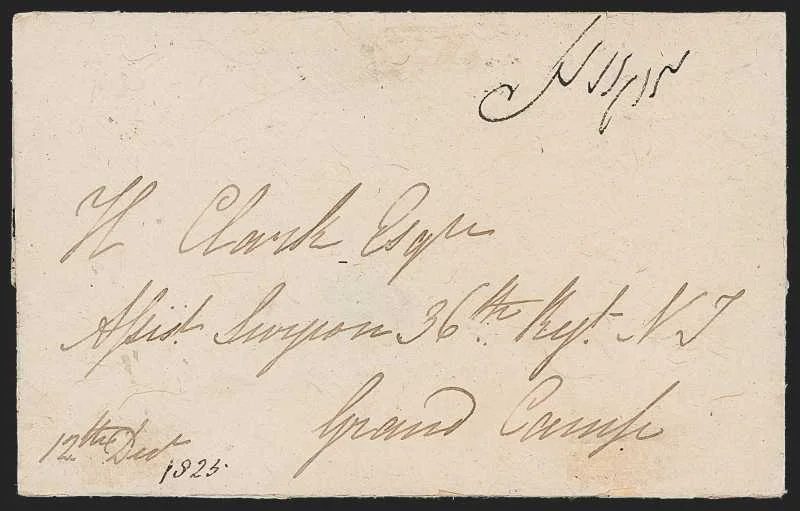 H Clark Esqre
Assist. Surgeon 36th. Regt. N I
Grand Camp
12th Decr
1825